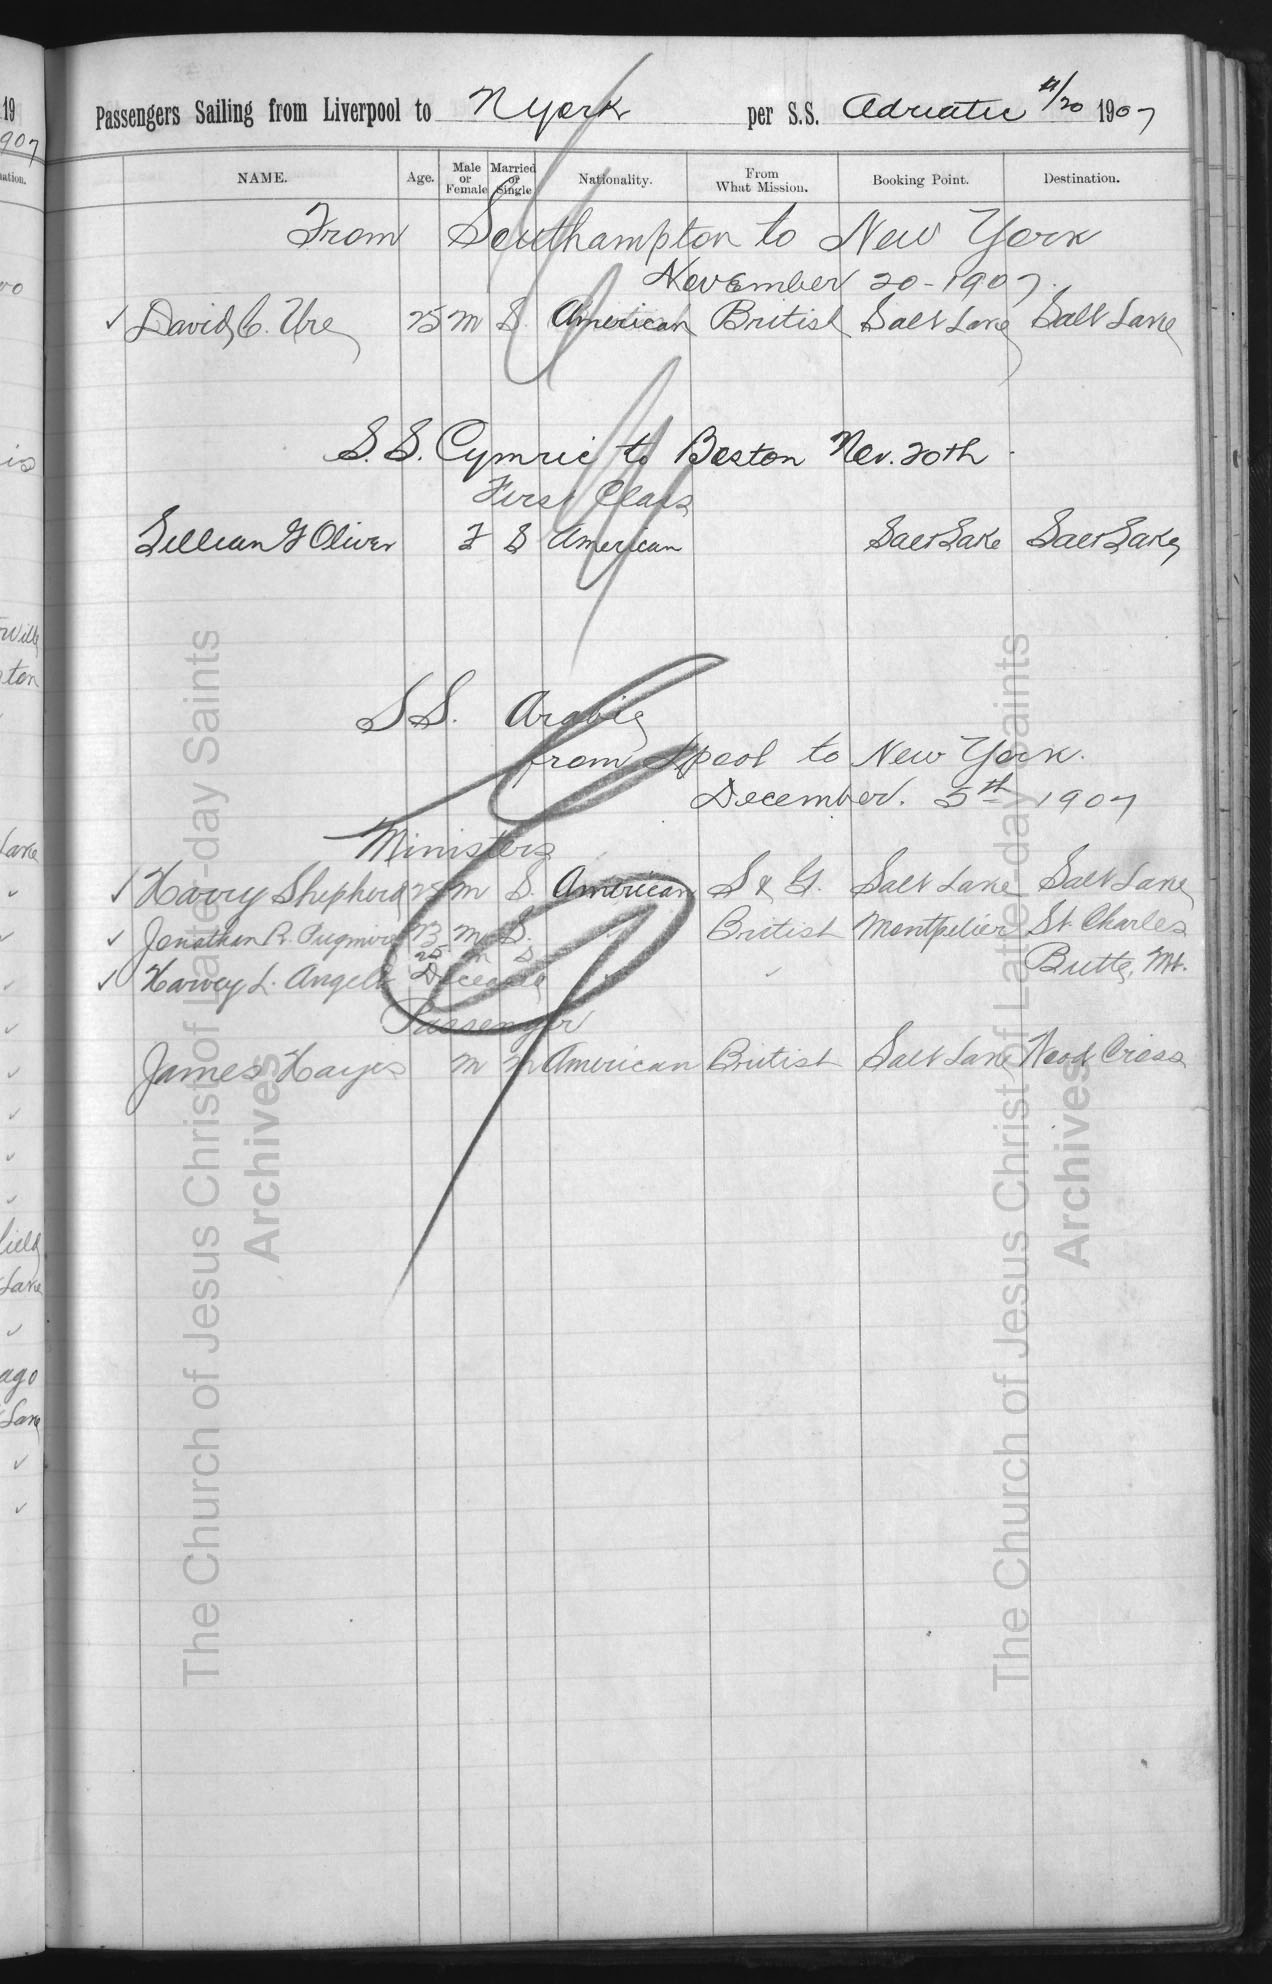 Passengers Sailing from Liverpool to N York per S.S. Adriatic 11/20 1907
NAME. Age. Male or Female Married or Single Nationality. From What Mission. Booking Point. Destination.
From Southampton to New York
November 20-1907.
✓ David C. Ure 25 M S. American British Salt Lake Salt Lake
S.S. Cymric to Boston Nov. 20th
First Class
Lillian G Oliver F S American Salt Lake Salt Lake
SS. Arabic
from Lpool to New York.
December. 5th 1907
Ministers
✓ Harry Shepherd 28 M S. American S & G. Salt Lake Salt Lake
✓ Jonathan R. Pugmire 23 M S. British Montpelier St. Charles
✓ Harvey L. Angell 25 M S ✓ Butte, Mt.
Deceased
Passenger
James Hayes M M American British Salt Lake Wood Cross
19
907
ation.
oo
is
rville
ton
Lake
✓
✓
✓
✓
✓
✓
✓
✓
field
Lake
✓
ago
Lake
✓
✓
The Church of Jesus Christ of Latter-day Saints
Archives
The Church of Jesus Christ of Latter-day Saints
Archives